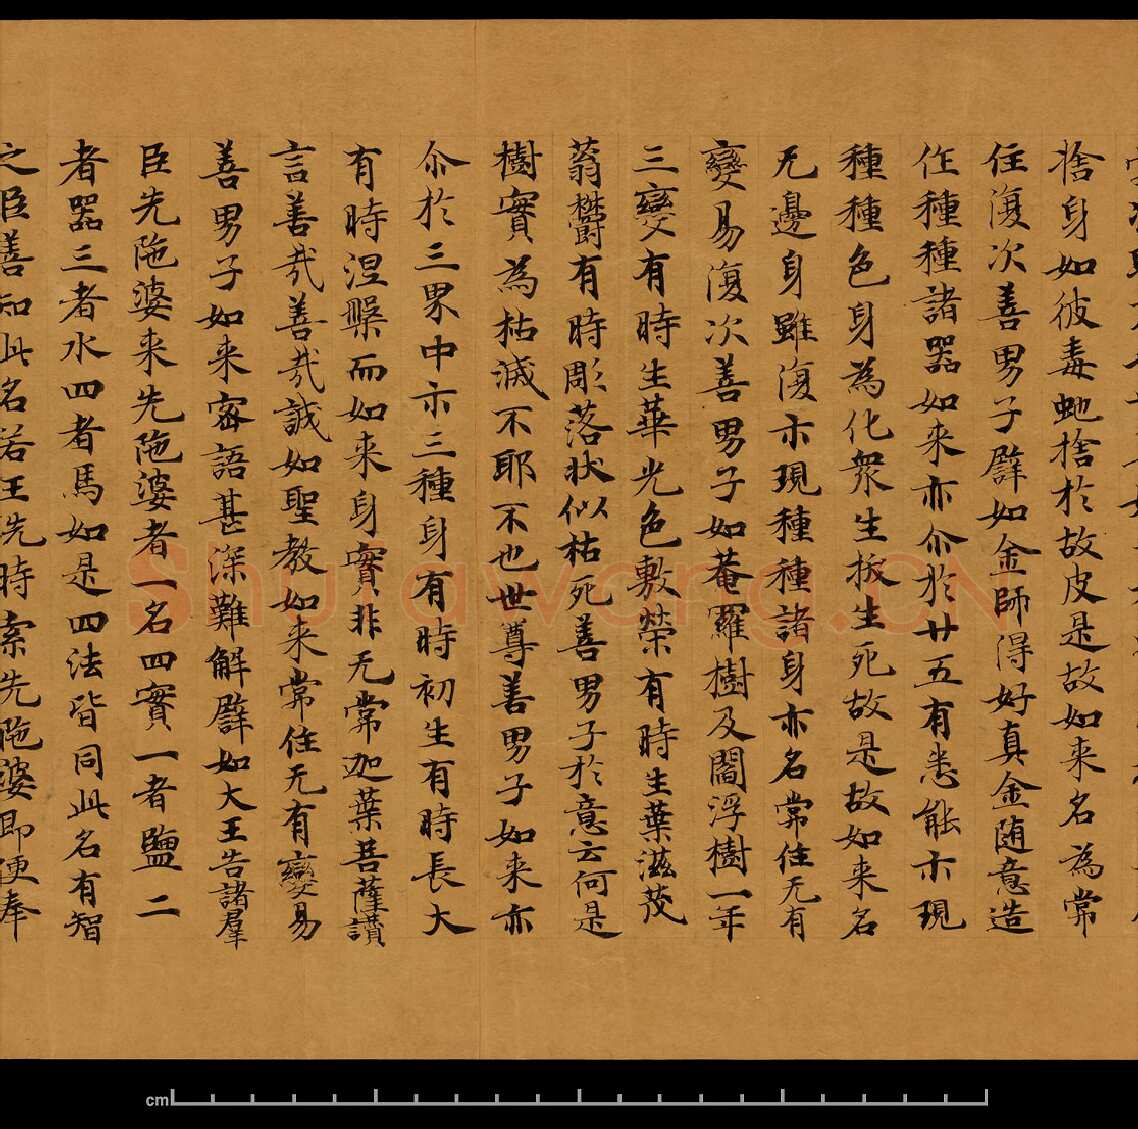 捨身如彼毒虵捨於故皮是故如来名為常
住復次善男子譬如金師得好真金随意造
作種種諸器如来亦尒於廿五有悉能示現
種種色身為化衆生拔生死故是故如来名
无邊身雖復示現種種諸身亦名常住无有
變易復次善男子如菴羅樹及閻浮樹一年
三變有時生華光色敷榮有時生葉滋茂
蓊欝有時彫落状似枯死善男子於意云何是
樹實為枯滅不耶不也世尊善男子如来亦
尒於三界中示三種身有時初生有時長大
有時涅槃而如来身實非无常迦葉菩薩讃
言善哉善哉誠如聖教如来常住无有變易
善男子如来密語甚深難解譬如大王告諸羣
臣先陁婆来先陁婆者一名四實一者鹽二
者器三者水四者馬如是四法皆同此名有智
之臣善知此名若王洗時索先陁婆即便奉
shufawang.CN
cm